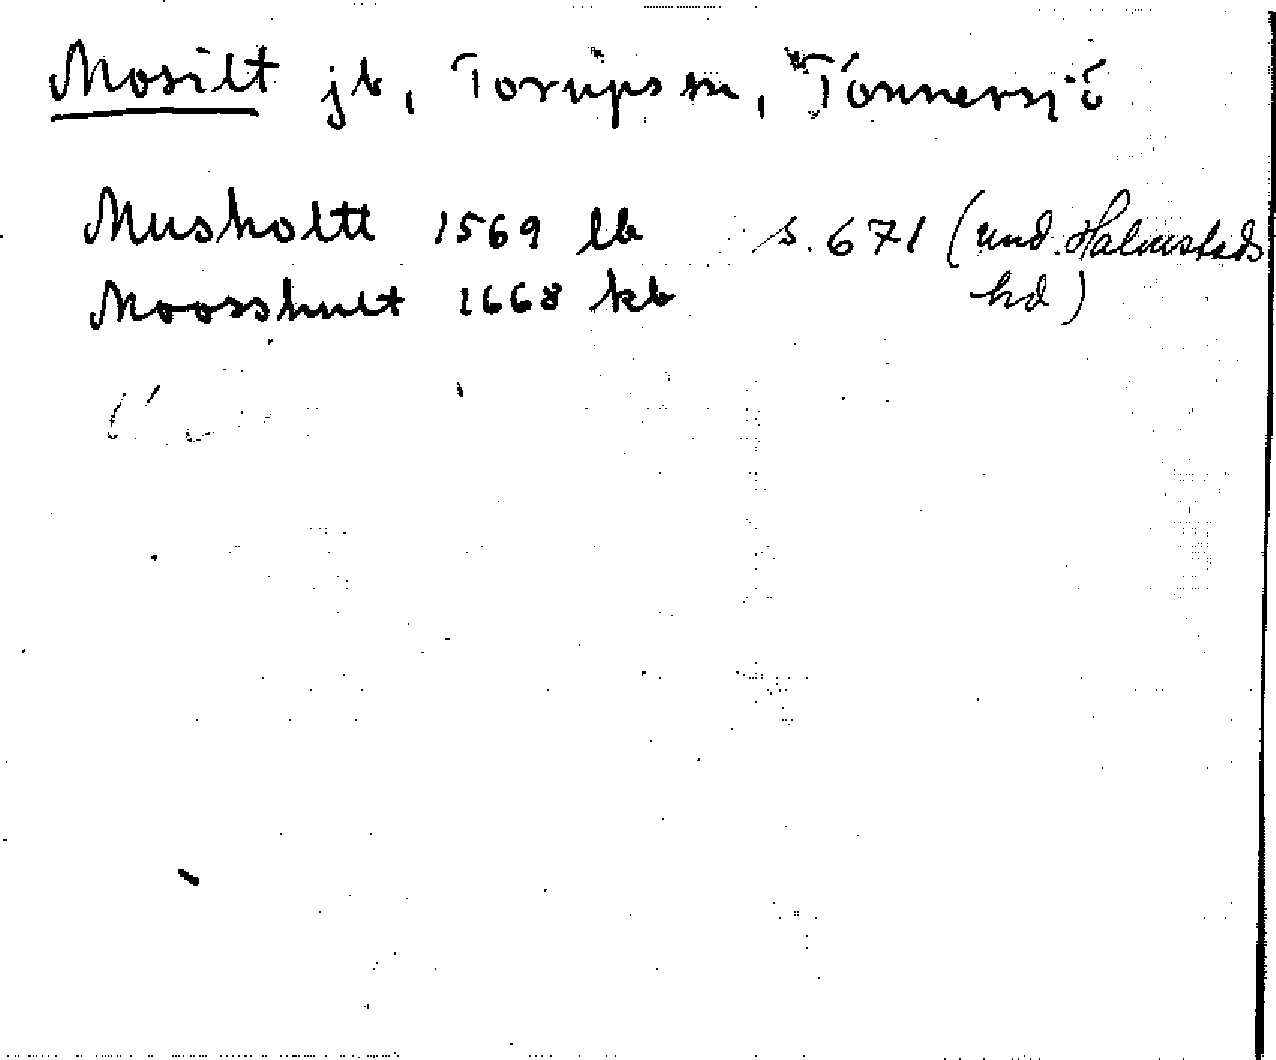 Mosilt jb, Torups sn, Tönnersjö
Musholtt 1569 lb s. 671 (und. Halmstads
hd)
Moosshult 1668 kb